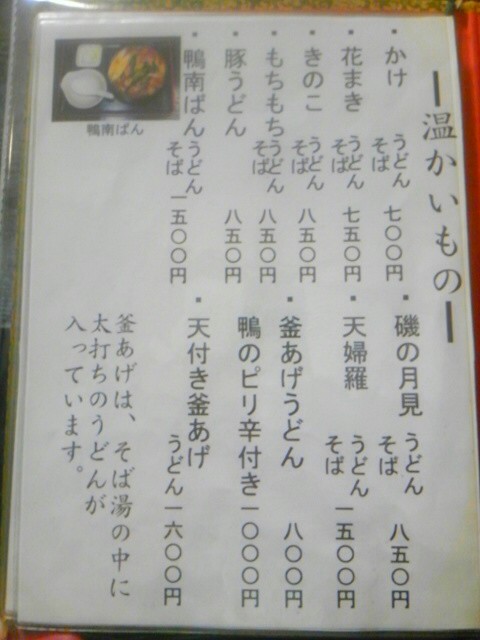 温かいもの
・かけ うどん そば 七〇〇円
・花まき うどん そば 七五〇円
・きのこ うどん そば 八五〇円
・もちもち うどん そば 八五〇円
・豚うどん 八五〇円
・鴨南ばん うどん そば 一五〇〇円
鴨南ばん
・磯の月見 うどん そば 八五〇円
・天婦羅 うどん そば 一五〇〇円
・釜あげうどん 八〇〇円
鴨のピリ辛付き 一〇〇〇円
・天付き釜あげ うどん 一六〇〇円
釜あげは、そば湯の中に
太打ちのうどんが
入っています。